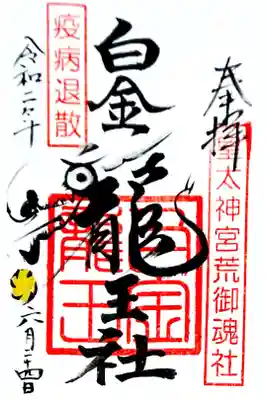 奉拝
皇太神宮荒御魂社
白金龍王社
白金龍王
疫病退散
令和二年
六月二十四日